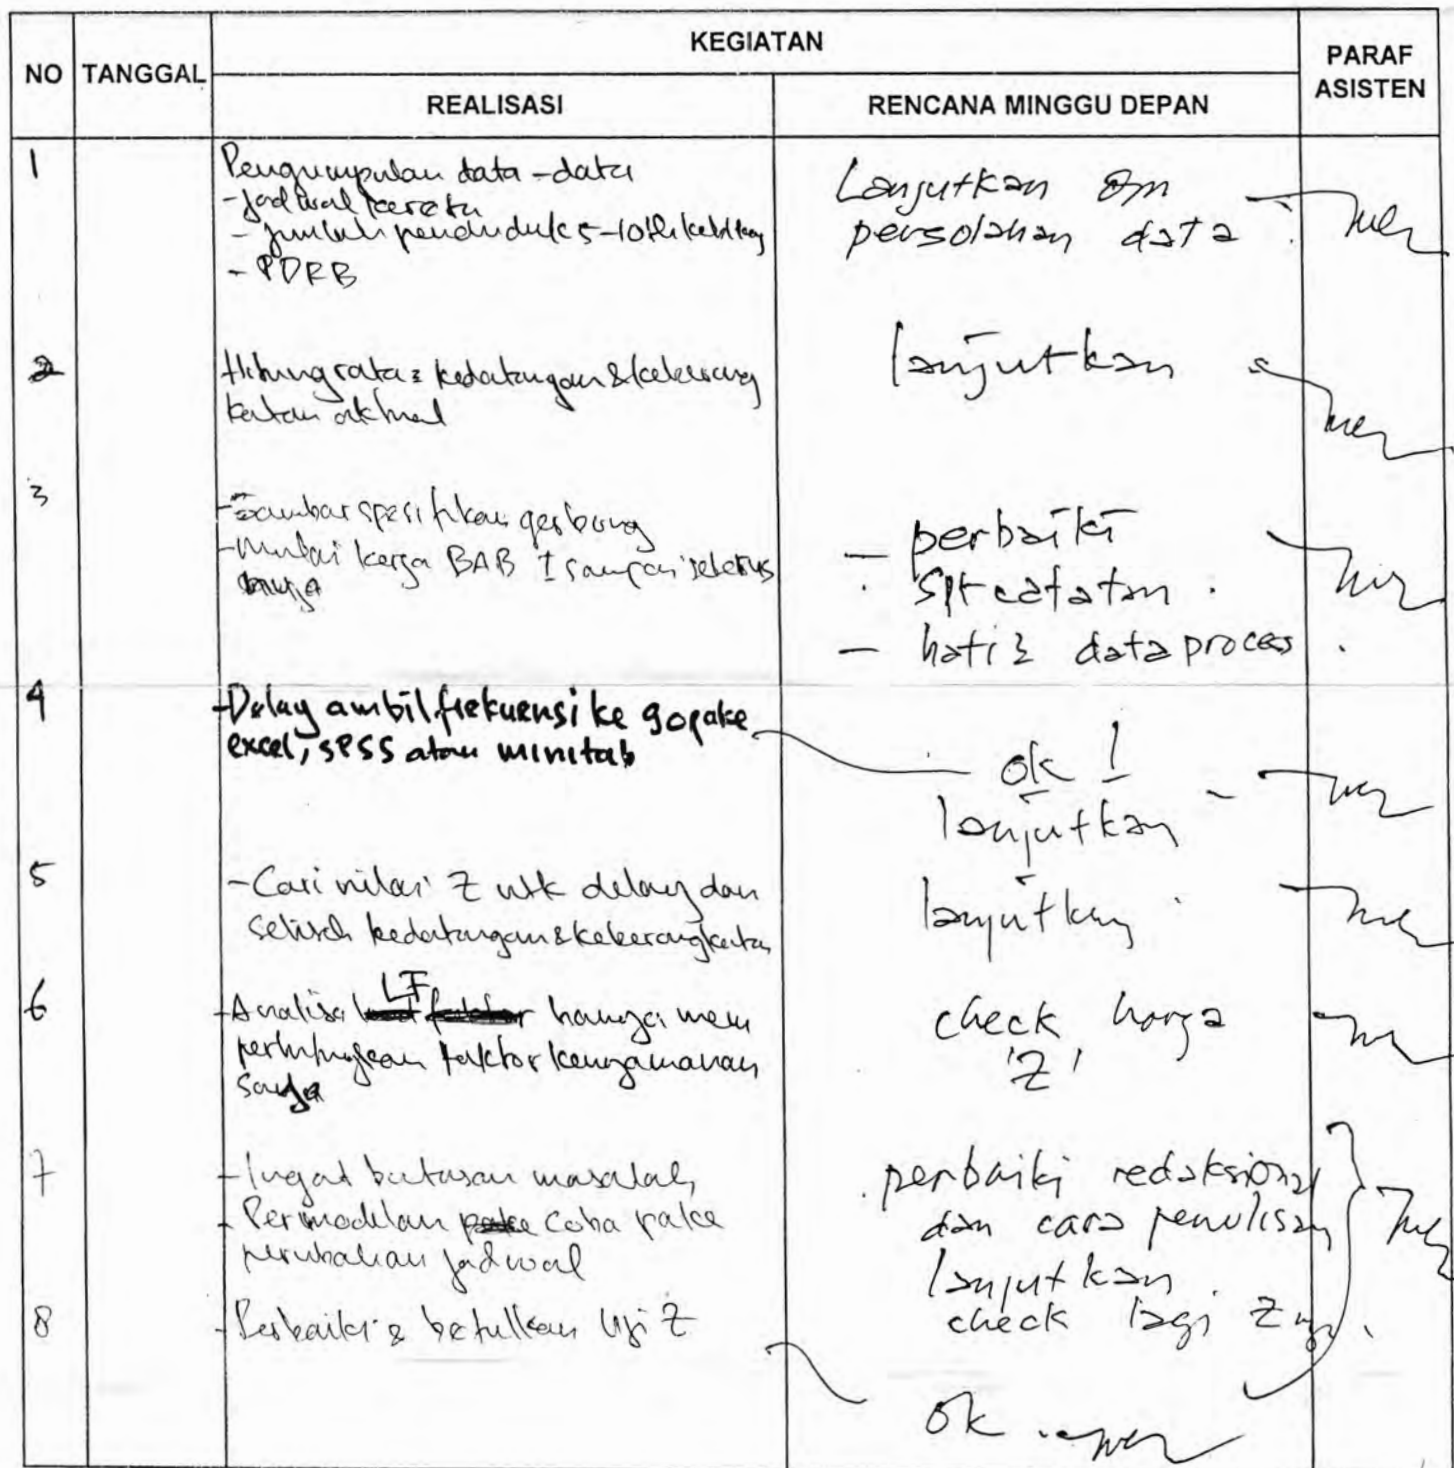 NO TANGGAL KEGIATAN PARAF ASISTEN
REALISASI RENCANA MINGGU DEPAN
1
Pengumpulan data-data
- jadwal kereta
- jumlah penduduk 5-10 th
- PDRB
Lanjutkan dgn
pengolahan data
2
Hitung rata2 kedatangan & keberang
katan aktual
lanjutkan
3
- Gambar spesifikasi gerbong
- Mulai kerja BAB I sampai seterus
nya
- perbaiki
spt catatan.
- hati2 data process
4
- Delay ambil frekuensi ke 90 pake
excel, SPSS atau minitab
ok!
lanjutkan
5
- Cari nilai Z utk delay dan
selisih kedatangan & keberangkatan
lanjutkan
6
- Analisa LF hanya mem
perhitungkan faktor kenyamanan
saja
check harga
'Z'
7
- Ingat batasan masalah
- Permodelan coba pake
perubahan jadwal
perbaiki redaksional
dan cara penulisan
lanjutkan
check lagi Z nya.
8
- Perbaiki & betulkan Uji Z
ok